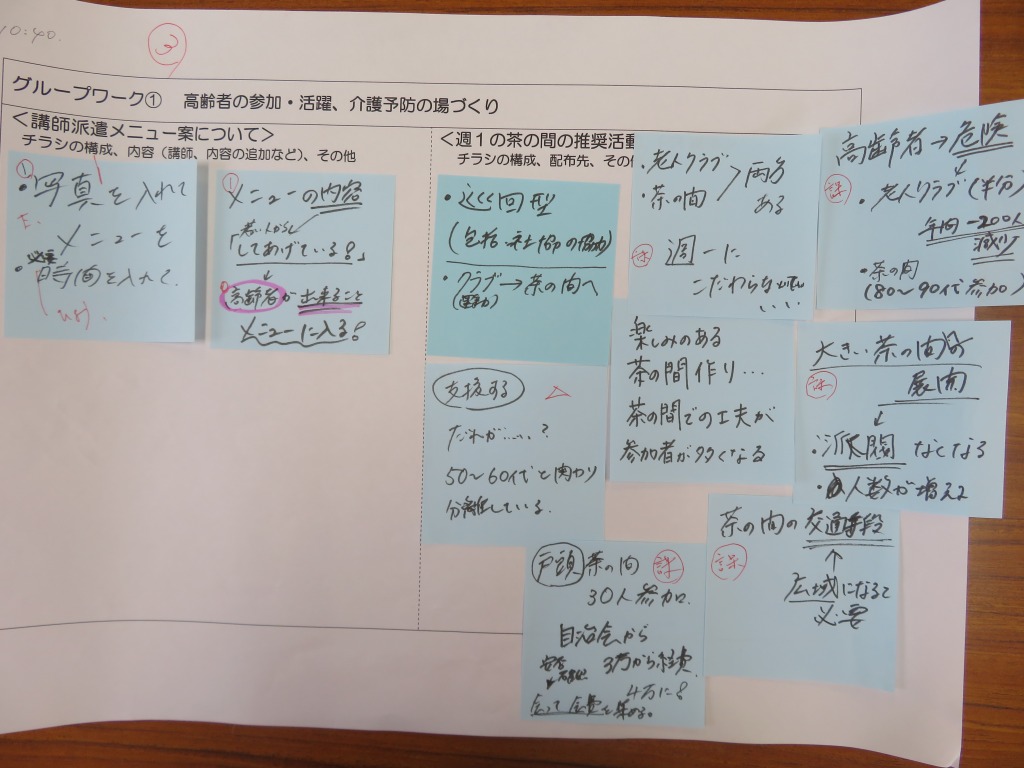 10:40.
③
グループワーク① 高齢者の参加・活躍、介護予防の場づくり
＜講師派遣メニュー案について＞
チラシの構成、内容（講師、内容の追加など）、その他
＜週１の茶の間の推奨活動
チラシの構成、配布先、その他
①
・写真を入れて
メニューを
・時間を入れて
①
メニューの内容
「若い人からし
してあげている!」
↓
高齢者が出来ること
メニューに入る!
・巡回型
(包括・社協の協力)
・クラブ→茶の間へ
・老人クラブ
・茶の間
＞両方
ある
週一に
こだわらなくてい
いい
高齢者→危険
課
・老人クラブ(半分)
年間-200人
減少
・茶の間
(80〜90代参加)
支援する
△
だれが……?
50〜60代と関わり
分離している.
楽しみのある
茶の間作り…
茶の間での工夫が
参加者が多くなる
大きい茶の間の
展開
課
↓
・派閥 なくなる
・人数が増える
戸頭 茶の間
課
30人参加.
自治会から
3万から経費
4万に!
会費を集める。
茶の間の交通手段
課
↑
広域になると
必要